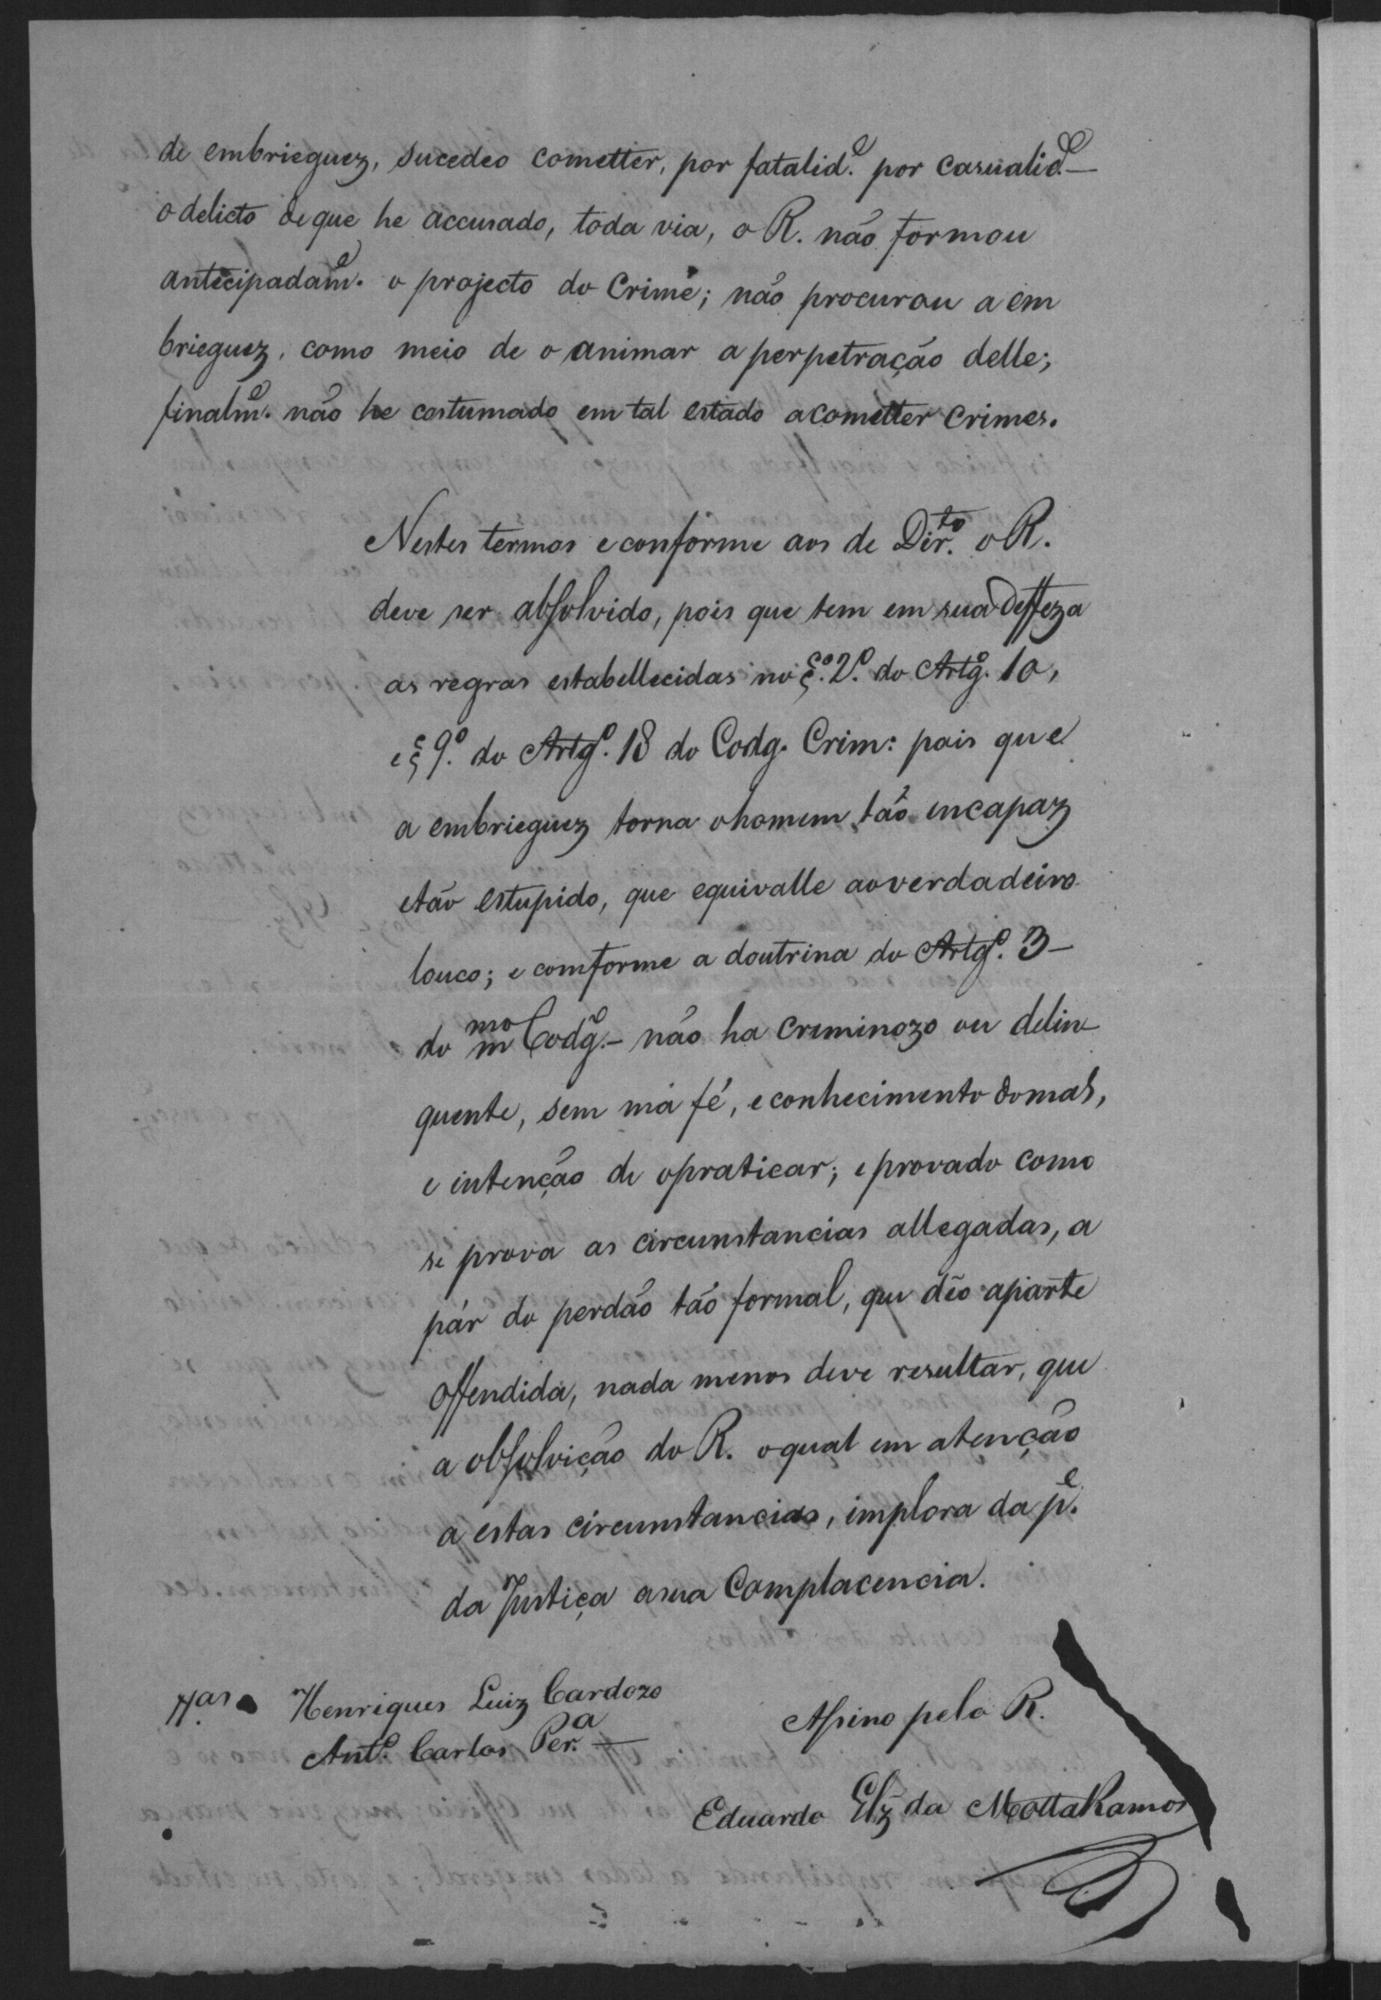 de embrieguez, sucedeo cometter, por fatalid.e por casualid.e —
o delicto de que he accusado, toda via, o R. não formou
anticipadam.e o projecto do Crime; não procurou a em
brieguez, como meio de o animar a perpetração delle;
finalm.e não he costumado em tal estado a cometter crimes.
Nestes termos e conforme aos de Dir.to o R.
deve ser absolvido, pois que tem em sua deffeza
as regras estabellecidas no §.o 2.o do Artg.o 10,
e § 9.o do Artg.o 18 do Codg. Crim: pois que
a embrieguez torna o homem tão encapaz
e tão estupido, que equivalle ao verdadeiro
louco; e comforme a doutrina do Artg.o 3 —
do m.mo Codg.o — não ha criminozo ou delin
quente, sem má fé, e conhecimento do mal,
e intenção de o praticar; e provado como
se prova as circunstancias allegadas, a
pár do perdão tão formal, que dêo a parte
offendida, nada menos deve resultar, que
a absolvição do R. o qual em atenção
a estas circunstancias, implora da p.e
da Justiça a sua Complacencia.
Assino pelo R.
Eduardo Elz da Motta Ramos
T.as Henriques Luiz Cardozo
Ant.o Carlos Per.a